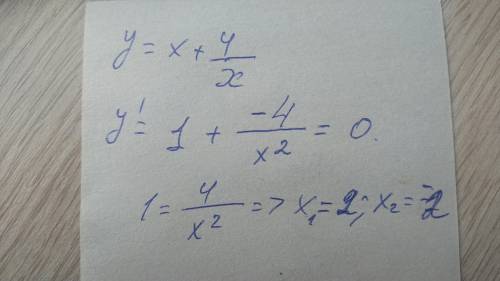 y = x + 4/x
y' = 1 + -4/x² = 0.
1 = 4/x² => x₁ = 2; x₂ = -2